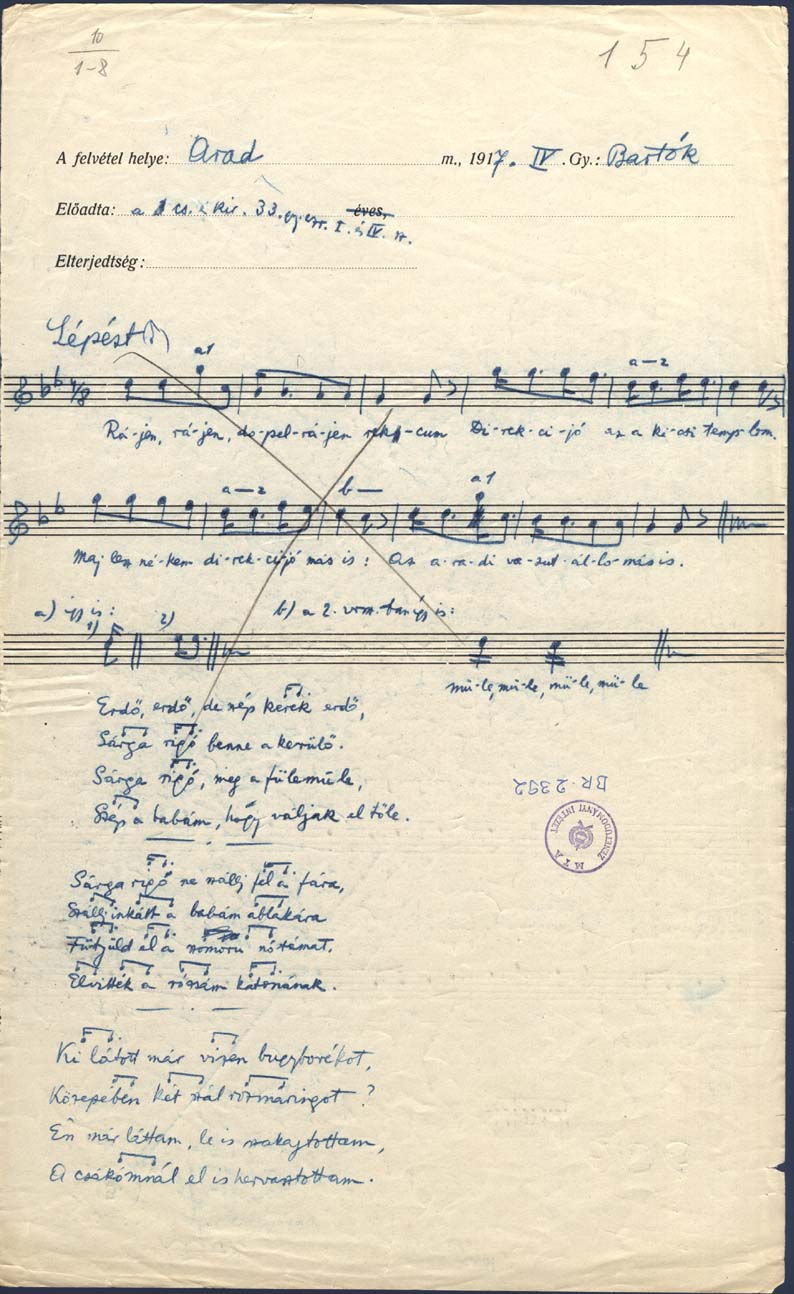 10
1-8
154
A felvétel helye: Arad m., 1917. IV. Gy.: Bartók
Előadta: a cs. és kir. 33. gy. ezr. I. és IV. sz. éves,
Elterjedtség:
Lépést
a1
a—2
Rá-jen, rá-jen, do-pel-rá-jen rekk-cum Di-rek-ci-jó az a ki-csi temp-lom.
a—2 b— a1
Maj lesz né-kem di-rek-ci-jó más is: Az a-ra-di va-sut-ál-lo-más is.
a) így is: b) a 2. vrsz.-ban így is:
1) 2)
mü-le, mü-le, mü-le, mü-le
Erdő, erdő, de szép kerek erdő,
Sárga rigó benne a kerülő.
Sárga rigó, meg a fülemüle,
Szép a babám, hogy váljak el tőle.
Sárga rigó ne szállj fel a fára,
Szállj inkább a babám ablakára
Fütyüld el a szomorú nótámat,
Elvitték a rózsám katonának.
Ki látott már vizen bugyborékot,
Közepében két szál rozmaringot?
Én már láttam, le is szakajtottam,
A csákómnál el is hervasztottam.
BR 2392
MTA ZENETUDOMÁNYI INTÉZET